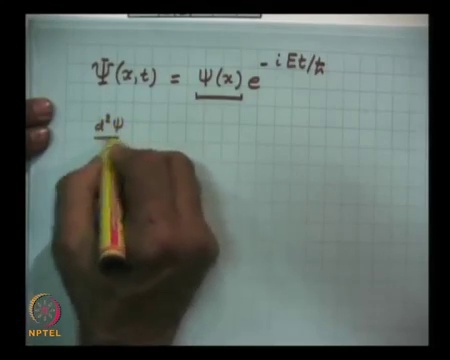 Ψ(x,t) = ψ(x) e^{-iEt/ħ}
d²ψ
NPTEL